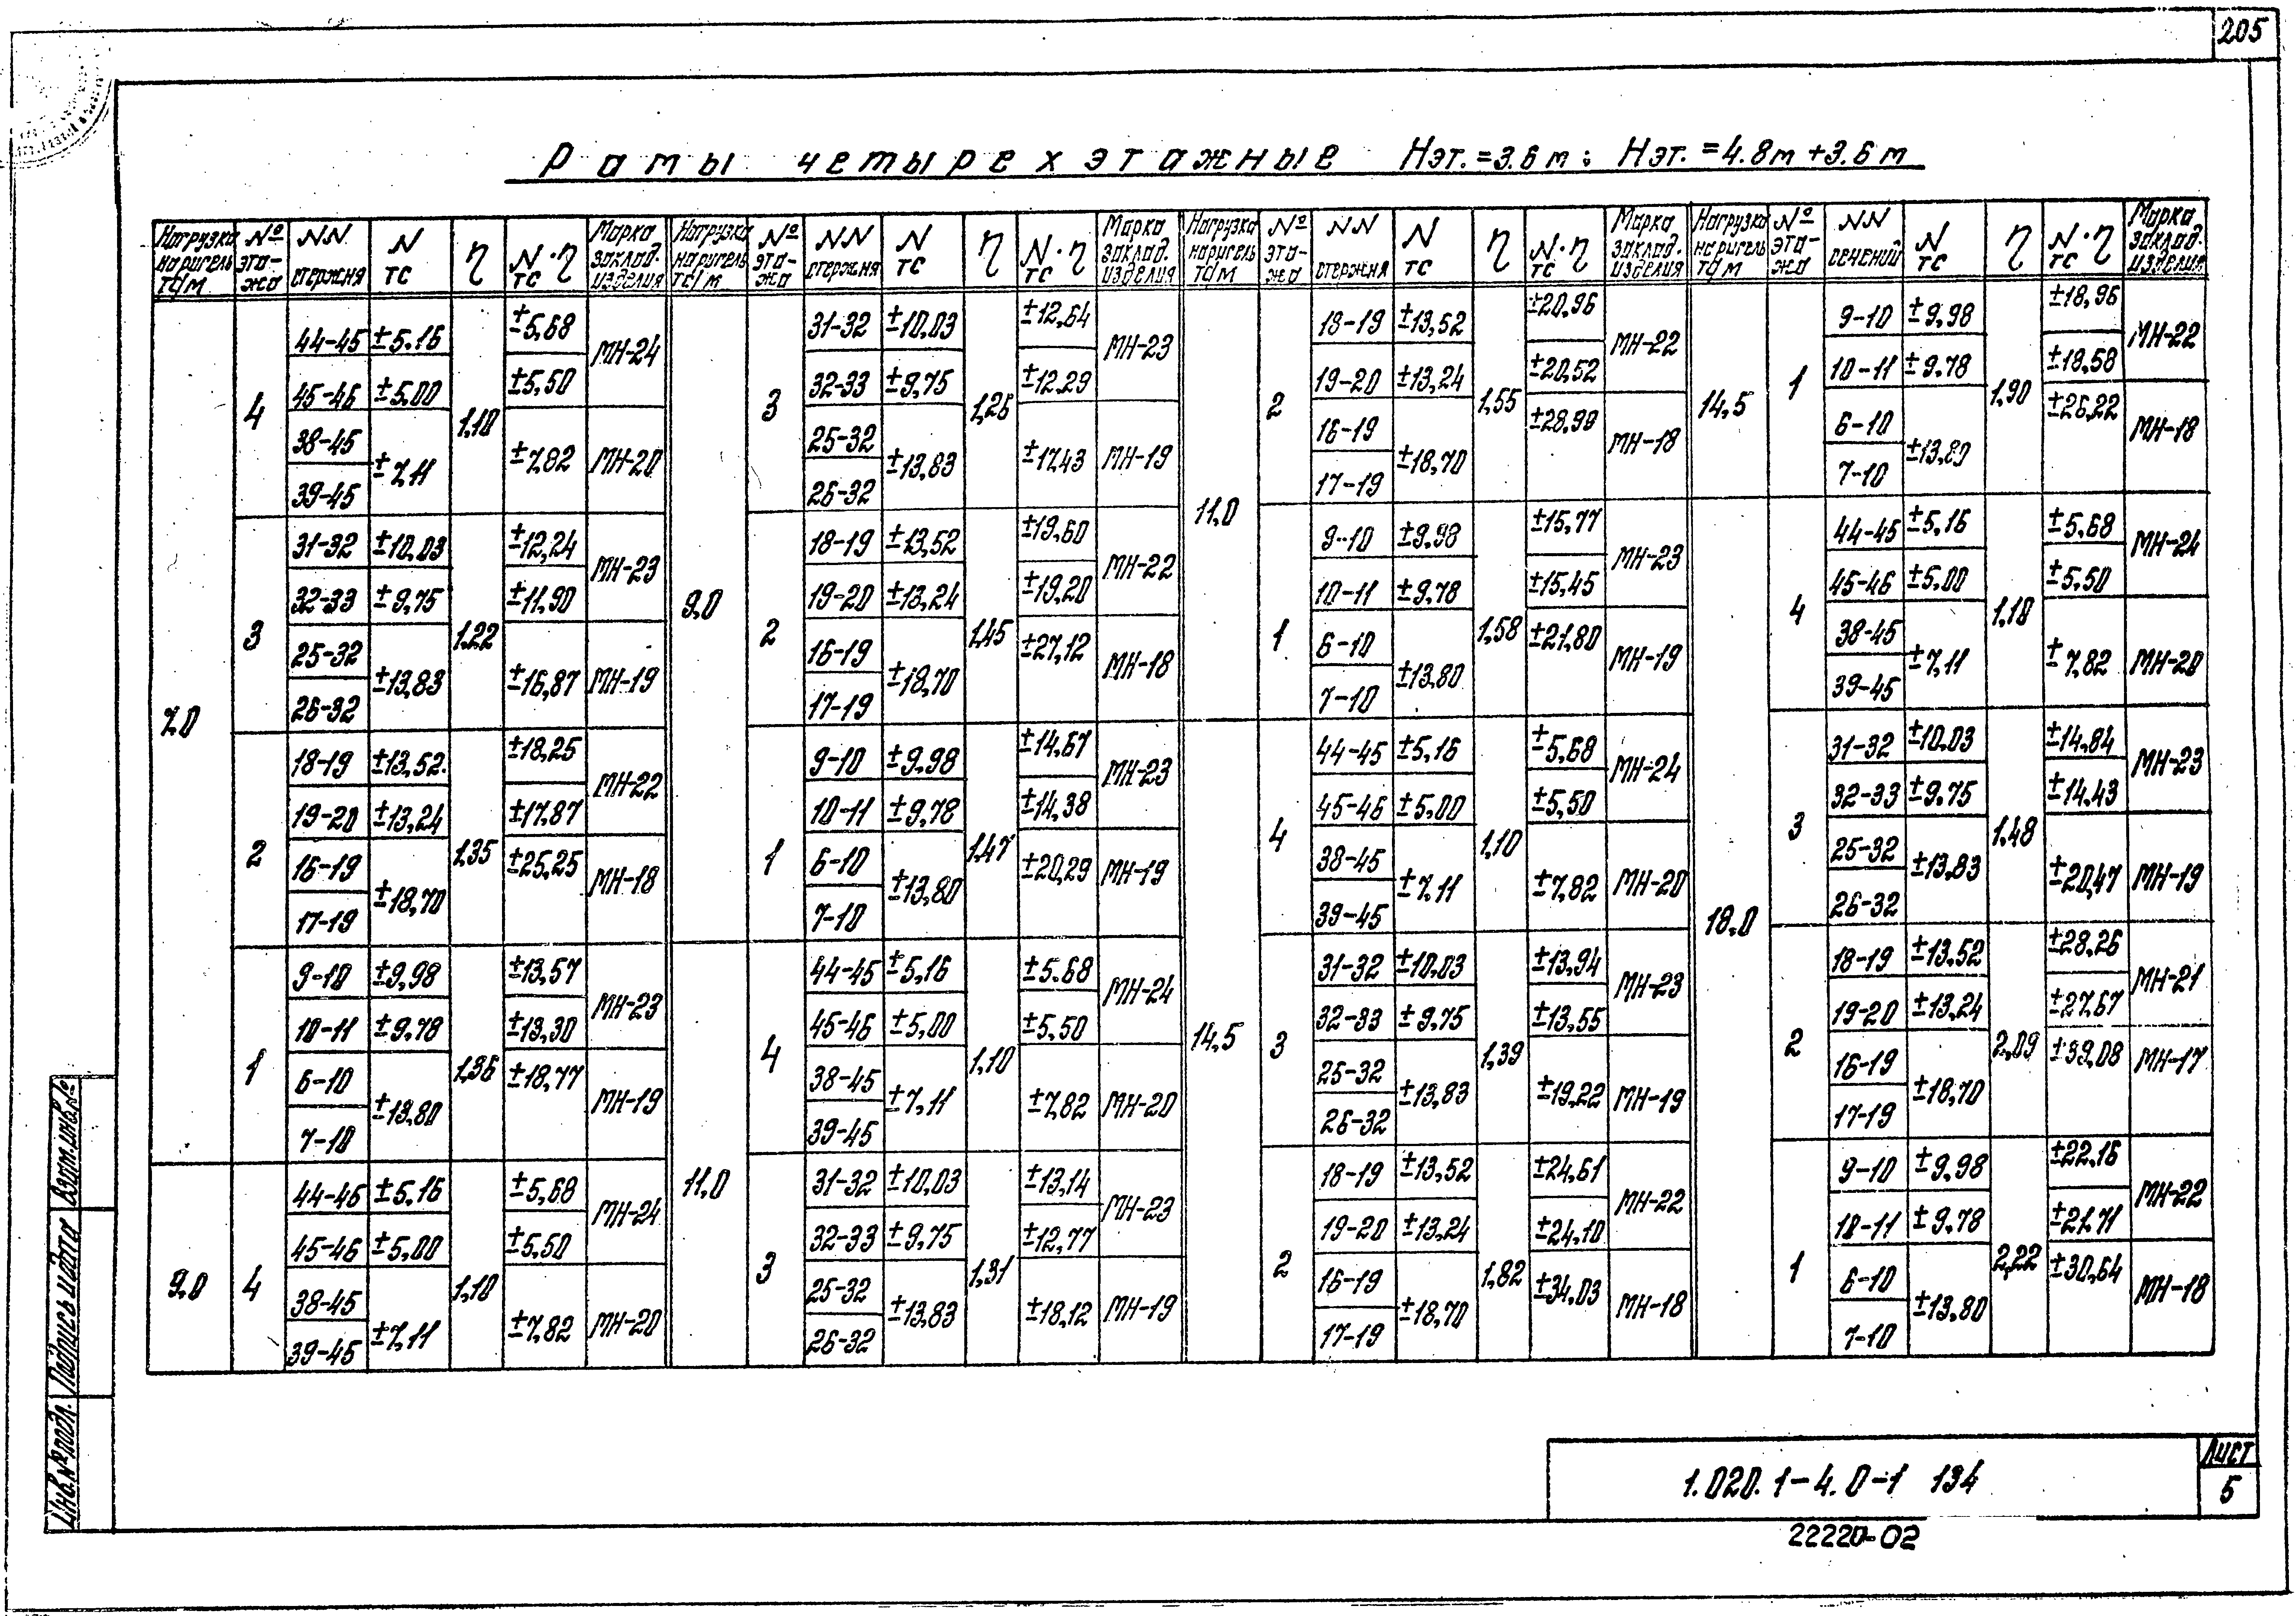 205
Рамы четырехэтажные Нэт.=3.6м; Нэт.=4.8м+3.6м
Нагрузка на ригель тс/м | №№ этажа | NN стержня | N тс | η | N·η тс | Марка заклад. изделия
7.0 | 4 | 44-45 | ±5.16 | 1,10 | ±5,68 | МН-24
45-46 | ±5.00 | ±5,50
38-45 | ±7,11 | ±7,82 | МН-20
39-45
3 | 31-32 | ±10,03 | 1,22 | ±12,24 | МН-23
32-33 | ±9,75 | ±11,90
25-32 | ±13,83 | ±16,87 | МН-19
26-32
2 | 18-19 | ±13,52 | 1,35 | ±18,25 | МН-22
19-20 | ±13,24 | ±17,87
16-19 | ±18,70 | ±25,25 | МН-18
17-19
1 | 9-10 | ±9,98 | 1,36 | ±13,57 | МН-23
10-11 | ±9,78 | ±13,30
6-10 | ±13,80 | ±18,77 | МН-19
7-10
9,0 | 4 | 44-46 | ±5,16 | 1,10 | ±5,68 | МН-24
45-46 | ±5,00 | ±5,50
38-45 | ±7,11 | ±7,82 | МН-20
39-45
Нагрузка на ригель тс/м | № этажа | NN стержня | N тс | η | N·η тс | Марка заклад. изделия
9,0 | 3 | 31-32 | ±10,03 | 1,26 | ±12,64 | МН-23
32-33 | ±9,75 | ±12,29
25-32 | ±13,83 | ±17,43 | МН-19
26-32
2 | 18-19 | ±13,52 | 1,45 | ±19,60 | МН-22
19-20 | ±13,24 | ±19,20
16-19 | ±18,70 | ±27,12 | МН-18
17-19
1 | 9-10 | ±9,98 | 1,47 | ±14,67 | МН-23
10-11 | ±9,78 | ±14,38
6-10 | ±13,80 | ±20,29 | МН-19
7-10
11,0 | 4 | 44-45 | ±5,16 | 1,10 | ±5.68 | МН-24
45-46 | ±5,00 | ±5,50
38-45 | ±7,11 | ±7,82 | МН-20
39-45
3 | 31-32 | ±10,03 | 1,31 | ±13,14 | МН-23
32-33 | ±9,75 | ±12,77
25-32 | ±13,83 | ±18,12 | МН-19
26-32
Нагрузка на ригель тс/м | № этажа | NN стержня | N тс | η | N·η тс | Марка заклад. изделия
11,0 | 2 | 18-19 | ±13,52 | 1,55 | ±20,96 | МН-22
19-20 | ±13,24 | ±20,52
16-19 | ±18,70 | ±28,99 | МН-18
17-19
1 | 9-10 | ±9,98 | 1,58 | ±15,77 | МН-23
10-11 | ±9,78 | ±15,45
6-10 | ±13,80 | ±21,80 | МН-19
7-10
14,5 | 4 | 44-45 | ±5,16 | 1,10 | ±5,68 | МН-24
45-46 | ±5,00 | ±5,50
38-45 | ±7,11 | ±7,82 | МН-20
39-45
3 | 31-32 | ±10,03 | 1,39 | ±13,94 | МН-23
32-33 | ±9,75 | ±13,55
25-32 | ±13,83 | ±19,22 | МН-19
26-32
2 | 18-19 | ±13,52 | 1,82 | ±24,61 | МН-22
19-20 | ±13,24 | ±24,10
16-19 | ±18,70 | ±34,03 | МН-18
17-19
Нагрузка на ригель тс/м | № этажа | NN сечений | N тс | η | N·η тс | Марка заклад. изделия
14,5 | 1 | 9-10 | ±9,98 | 1,90 | ±18,96 | МН-22
10-11 | ±9,78 | ±18,58
6-10 | ±13,80 | ±26,22 | МН-18
7-10
18,0 | 4 | 44-45 | ±5,16 | 1,10 | ±5,68 | МН-24
45-46 | ±5,00 | ±5,50
38-45 | ±7,11 | ±7,82 | МН-20
39-45
3 | 31-32 | ±10,03 | 1,48 | ±14,84 | МН-23
32-33 | ±9,75 | ±14,43
25-32 | ±13,83 | ±20,47 | МН-19
26-32
2 | 18-19 | ±13,52 | 2,09 | ±28,26 | МН-21
19-20 | ±13,24 | ±27,67
16-19 | ±18,70 | ±39,08 | МН-17
17-19
1 | 9-10 | ±9,98 | 2,22 | ±22,16 | МН-22
10-11 | ±9,78 | ±21,71
6-10 | ±13,80 | ±30,64 | МН-18
7-10
Инв.№подл. Подпись и дата Взам.инв.№
1.020.1-4.0-1 134
Лист
5
22220-02